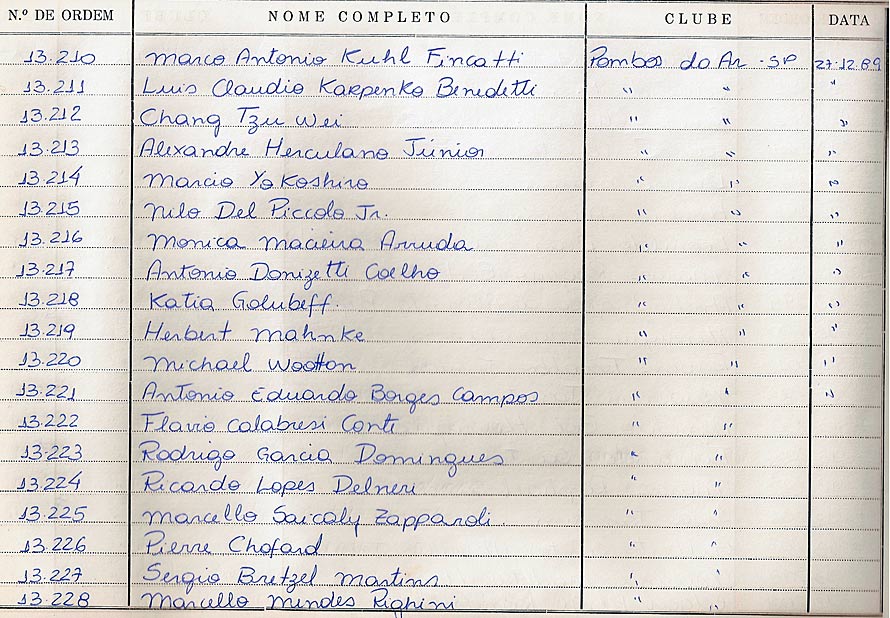 N.º DE ORDEM NOME COMPLETO CLUBE DATA
13.210 Marco Antonio Kuhl Fincatti Pombos do Ar - SP 27.12.89
13.211 Luis Claudio Karpenko Benedetti " " "
13.212 Chang Tzu Wei " " "
13.213 Alexandre Herculano Júnior " " "
13.214 Marcio Yokoshiro " " "
13.215 Nilo Del Piccolo Jr. " " "
13.216 Monica Macieira Arruda " " "
13.217 Antonio Donizetti Coelho " " "
13.218 Katia Golubeff. " " "
13.219 Herbert Mahnke " " "
13.220 Michael Wootton " " "
13.221 Antonio Eduardo Borges Campos " " "
13.222 Flavio Calabresi Conte " "
13.223 Rodrigo Garcia Domingues " "
13.224 Ricardo Lopes Delneri " "
13.225 Marcello Saicaly Zapparoli. " "
13.226 Pierre Chofard " "
13.227 Sergio Bretzel Martins " "
13.228 Marcello Mendes Righini " "